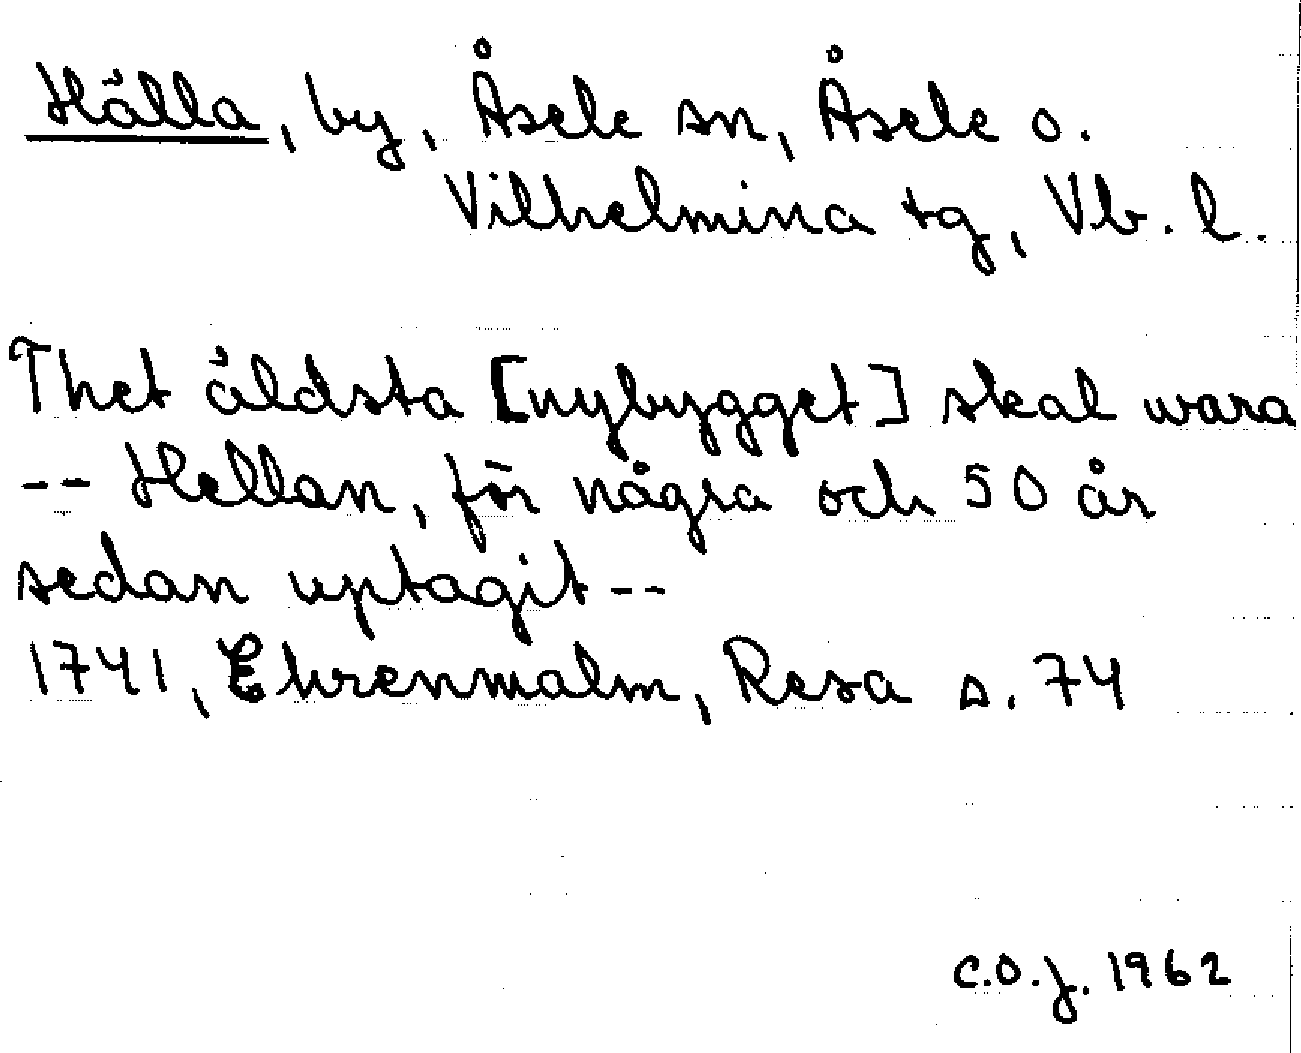 Hälla, by, Åsele sn, Åsele o.
Vilhelmina tg, Vb. l.
Thet äldsta [nybygget] skal wara
-- Hellan, för några och 50 år
sedan uptagit --
1741, Ehrenmalm, Resa s. 74
C.O.J. 1962